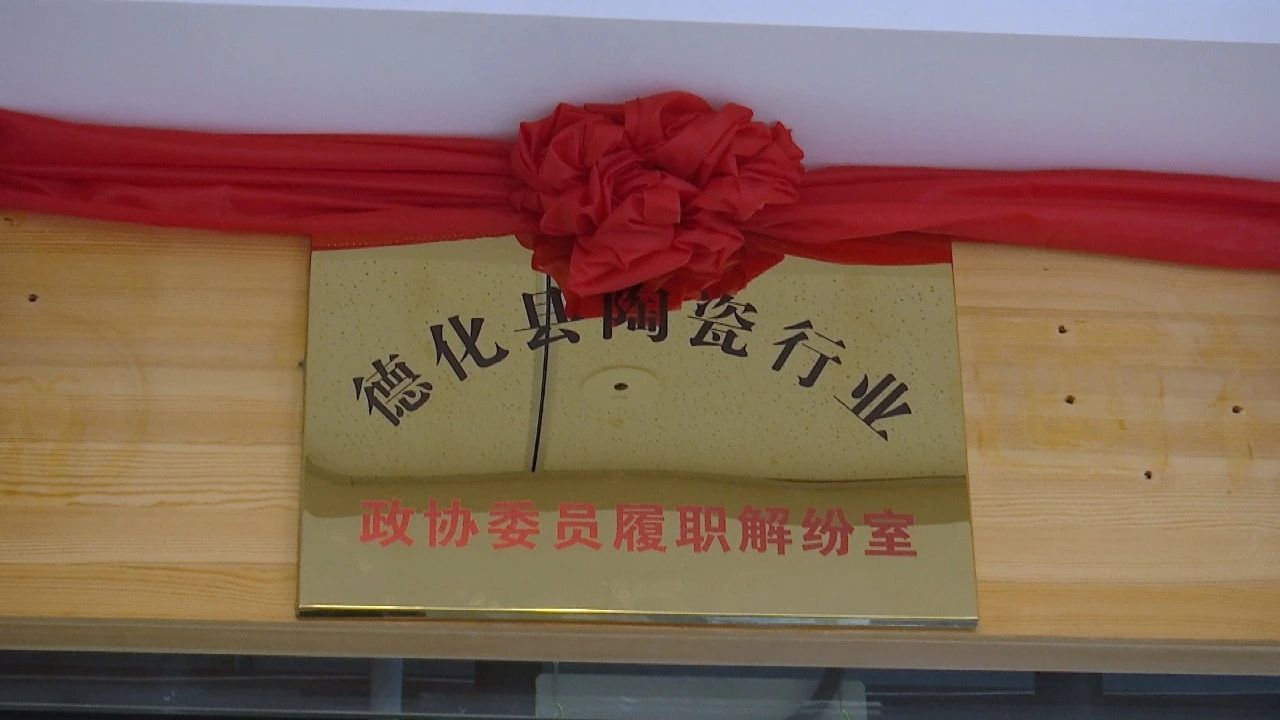 德化县陶瓷行业
政协委员履职解纷室